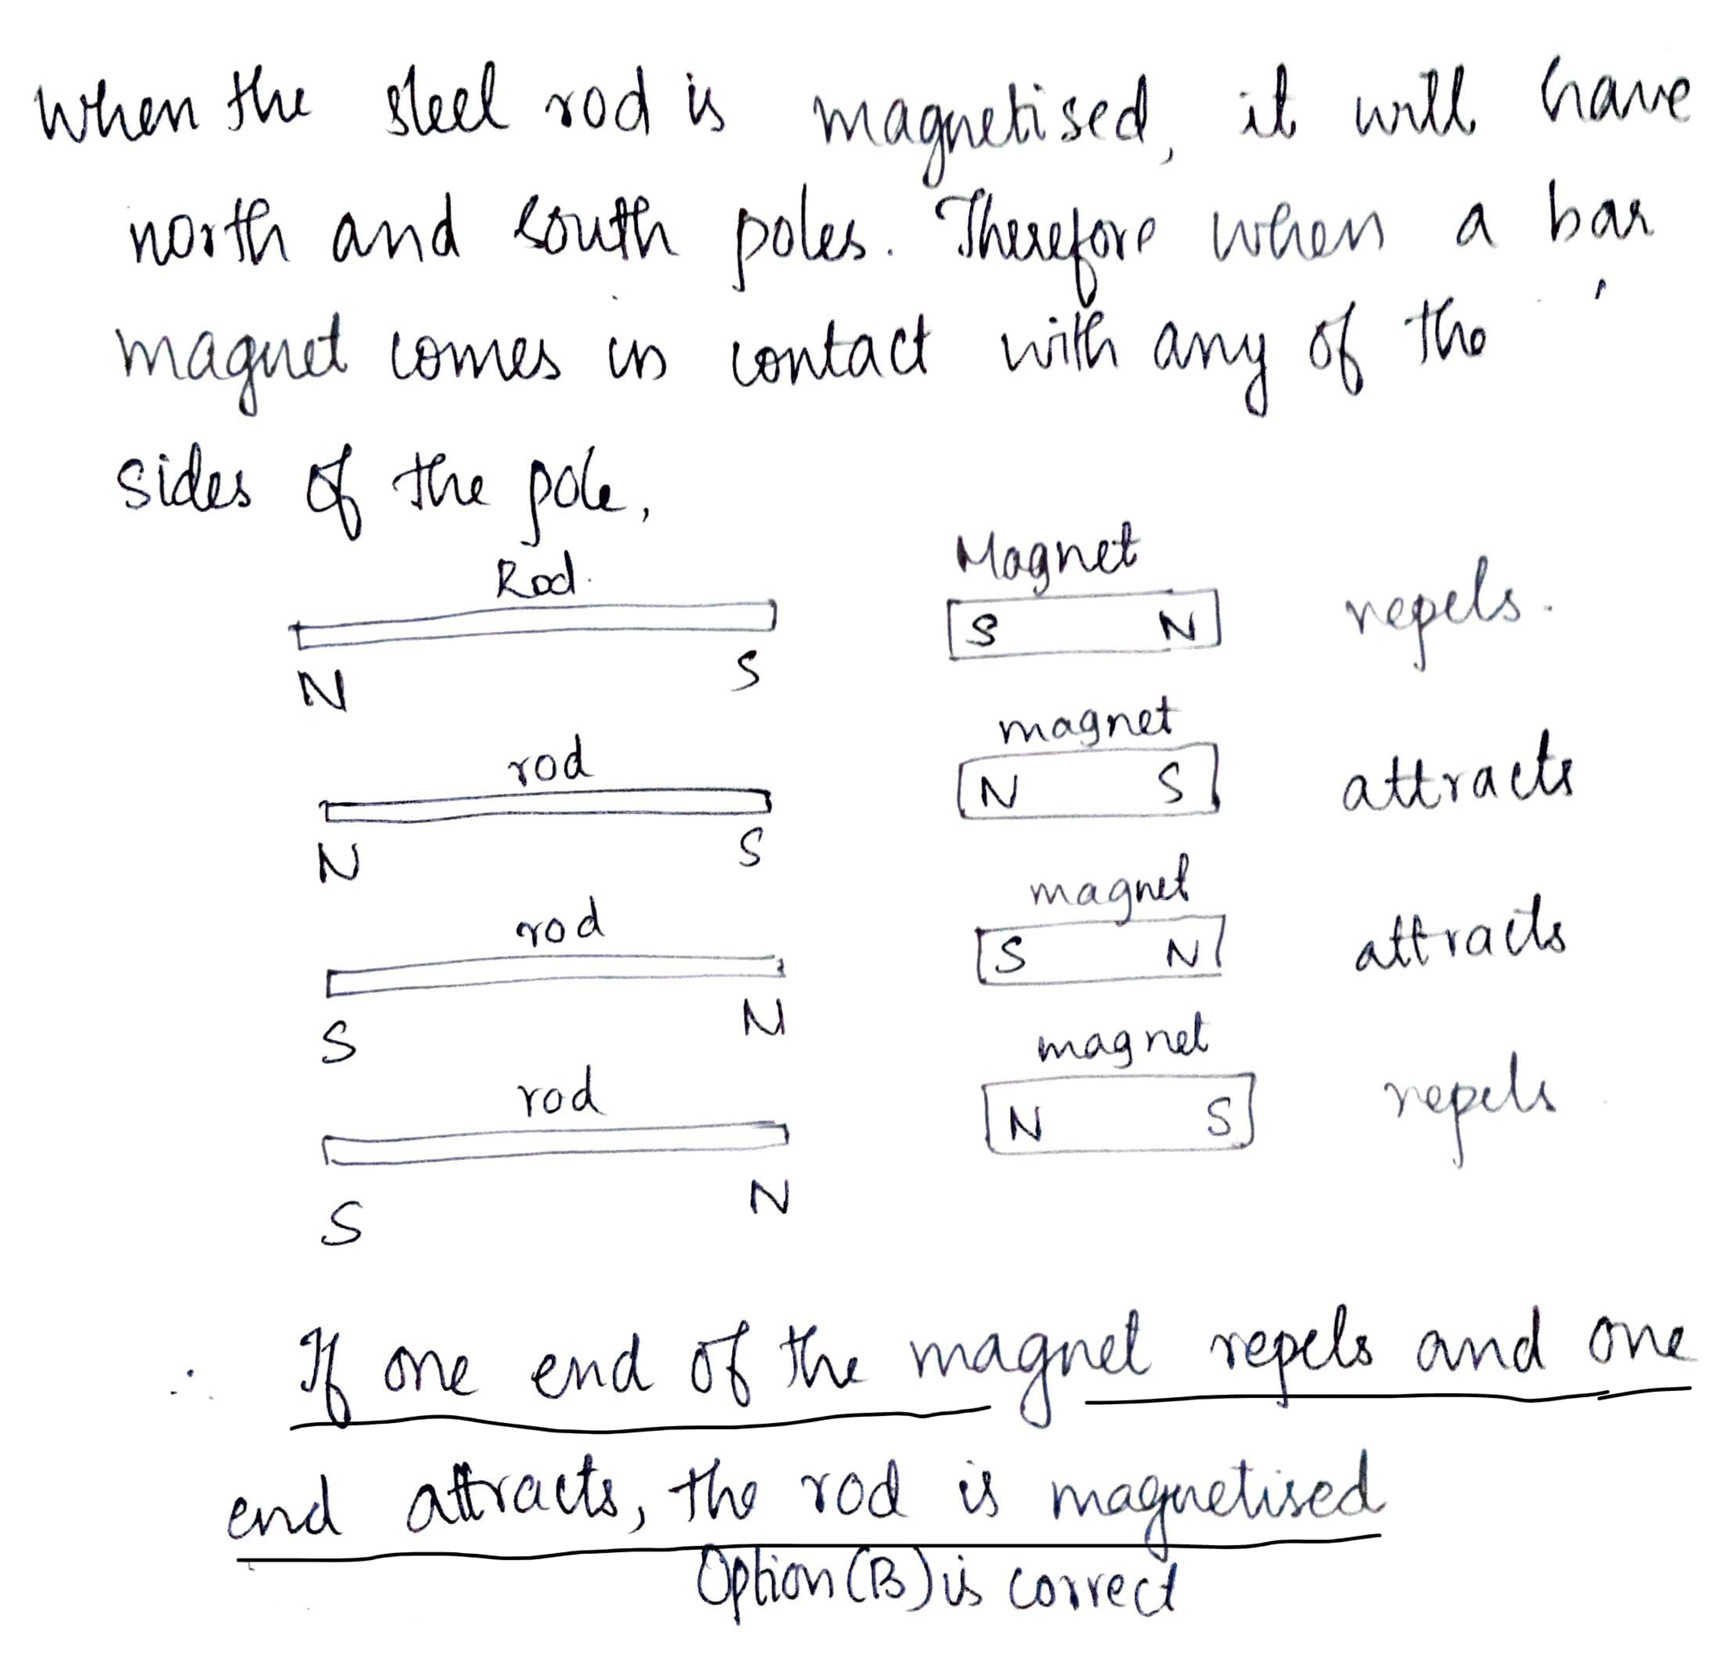 When the steel rod is magnetised, it will have
north and south poles. Therefore when a bar
magnet comes in contact with any of the
sides of the pole,
Rod. Magnet
S N repels.
N S
rod magnet
N S attracts
N S
rod magnet
S N attracts
S N
rod magnet
N S repels
S N
∴ If one end of the magnet repels and one
end attracts, the rod is magnetised
Option (B) is correct